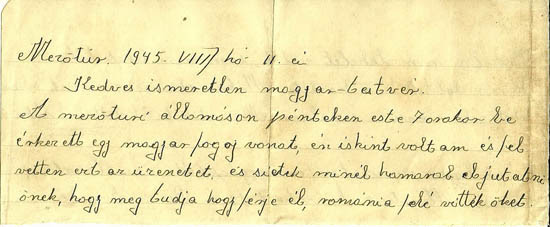 Mezőtúr. 1945. VIII hó 11. éi
Kedves ismeretlen magyar-testvér.
A mezőturi állomáson pénteken este 7 orakor be
érkezett egy magyar fogoj vonat, én is kint voltam és fel
vettem ezt az üzenetet, és sietek minél hamarab eljutatni
önek, hogy meg tudja hogy férje él, románia felé vitték őket.